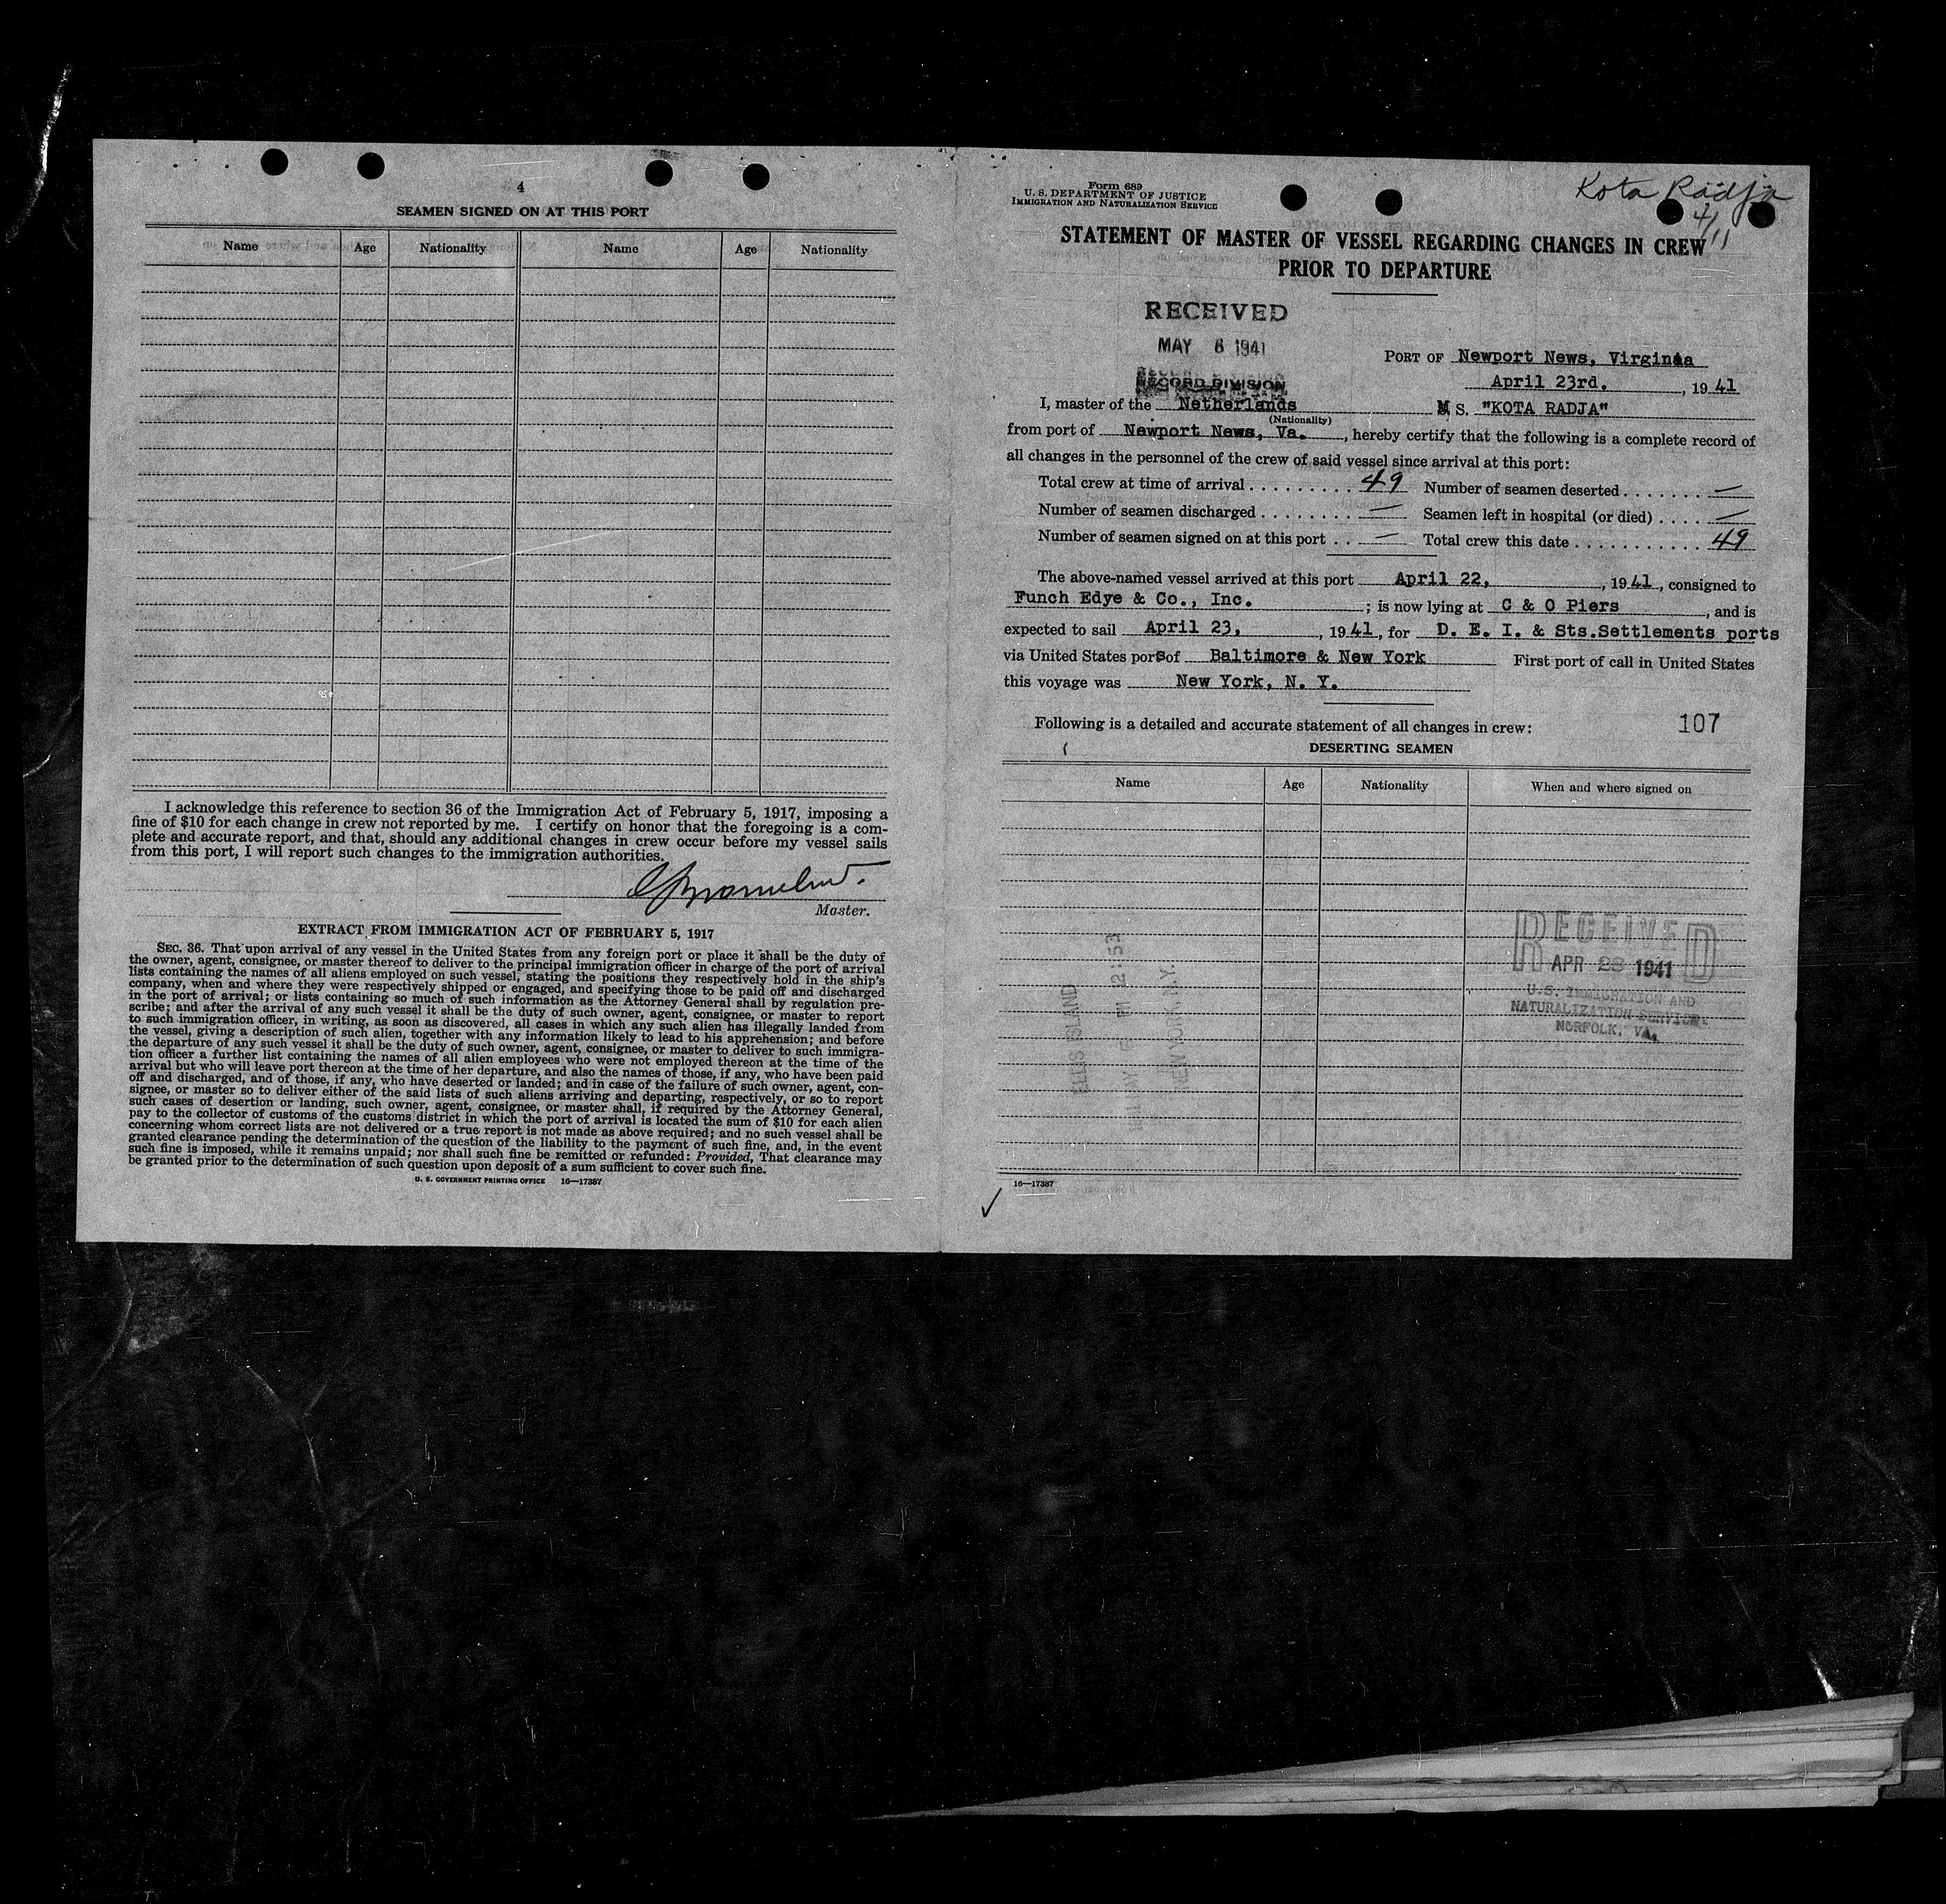 4
SEAMEN SIGNED ON AT THIS PORT
Name Age Nationality Name Age Nationality
I acknowledge this reference to section 36 of the Immigration Act of February 5, 1917, imposing a
fine of $10 for each change in crew not reported by me. I certify on honor that the foregoing is a com-
plete and accurate report, and that, should any additional changes in crew occur before my vessel sails
from this port, I will report such changes to the immigration authorities.
Master.
EXTRACT FROM IMMIGRATION ACT OF FEBRUARY 5, 1917
SEC. 36. That upon arrival of any vessel in the United States from any foreign port or place it shall be the duty of
the owner, agent, consignee, or master thereof to deliver to the principal immigration officer in charge of the port of arrival
lists containing the names of all aliens employed on such vessel, stating the positions they respectively hold in the ship's
company, when and where they were respectively shipped or engaged, and specifying those to be paid off and discharged
in the port of arrival; or lists containing so much of such information as the Attorney General shall by regulation pre-
scribe; and after the arrival of any such vessel it shall be the duty of such owner, agent, consignee, or master to report
to such immigration officer, in writing, as soon as discovered, all cases in which any such alien has illegally landed from
the vessel, giving a description of such alien, together with any information likely to lead to his apprehension; and before
the departure of any such vessel it shall be the duty of such owner, agent, consignee, or master to deliver to such immigra-
tion officer a further list containing the names of all alien employees who were not employed thereon at the time of the
arrival but who will leave port thereon at the time of her departure, and also the names of those, if any, who have been paid
off and discharged, and of those, if any, who have deserted or landed; and in case of the failure of such owner, agent, con-
signee, or master so to deliver either of the said lists of such aliens arriving and departing, respectively, or so to report
such cases of desertion or landing, such owner, agent, consignee, or master shall, if required by the Attorney General,
pay to the collector of customs of the customs district in which the port of arrival is located the sum of $10 for each alien
concerning whom correct lists are not delivered or a true report is not made as above required; and no such vessel shall be
granted clearance pending the determination of the question of the liability to the payment of such fine, and, in the event
such fine is imposed, while it remains unpaid; nor shall such fine be remitted or refunded: Provided, That clearance may
be granted prior to the determination of such question upon deposit of a sum sufficient to cover such fine.
U. S. GOVERNMENT PRINTING OFFICE 16—17387
Form 689
U. S. DEPARTMENT OF JUSTICE
IMMIGRATION AND NATURALIZATION SERVICE
Kota Radja
4/11
STATEMENT OF MASTER OF VESSEL REGARDING CHANGES IN CREW
PRIOR TO DEPARTURE
RECEIVED
MAY 6 1941
RECORD DIVISION
PORT OF Newport News, Virginia
April 23rd. , 1941
I, master of the Netherlands M S. "KOTA RADJA"
(Nationality)
from port of Newport News, Va. , hereby certify that the following is a complete record of
all changes in the personnel of the crew of said vessel since arrival at this port:
Total crew at time of arrival . . . . . . . . . 49 Number of seamen deserted . . . . . . . —
Number of seamen discharged . . . . . . . . — Seamen left in hospital (or died) . . . . —
Number of seamen signed on at this port . . — Total crew this date . . . . . . . . . . . 49
The above-named vessel arrived at this port April 22, , 1941, consigned to
Funch Edye & Co., Inc. ; is now lying at C & O Piers , and is
expected to sail April 23, , 1941, for D. E. I. & Sts.Settlements ports
via United States ports of Baltimore & New York First port of call in United States
this voyage was New York, N. Y.
Following is a detailed and accurate statement of all changes in crew: 107
DESERTING SEAMEN
Name Age Nationality When and where signed on
RECEIVED
APR 28 1941
U.S. IMMIGRATION AND
NATURALIZATION SERVICE
NORFOLK, VA.
ELLIS ISLAND
2:53
NEW YORK, N.Y.
16—17387